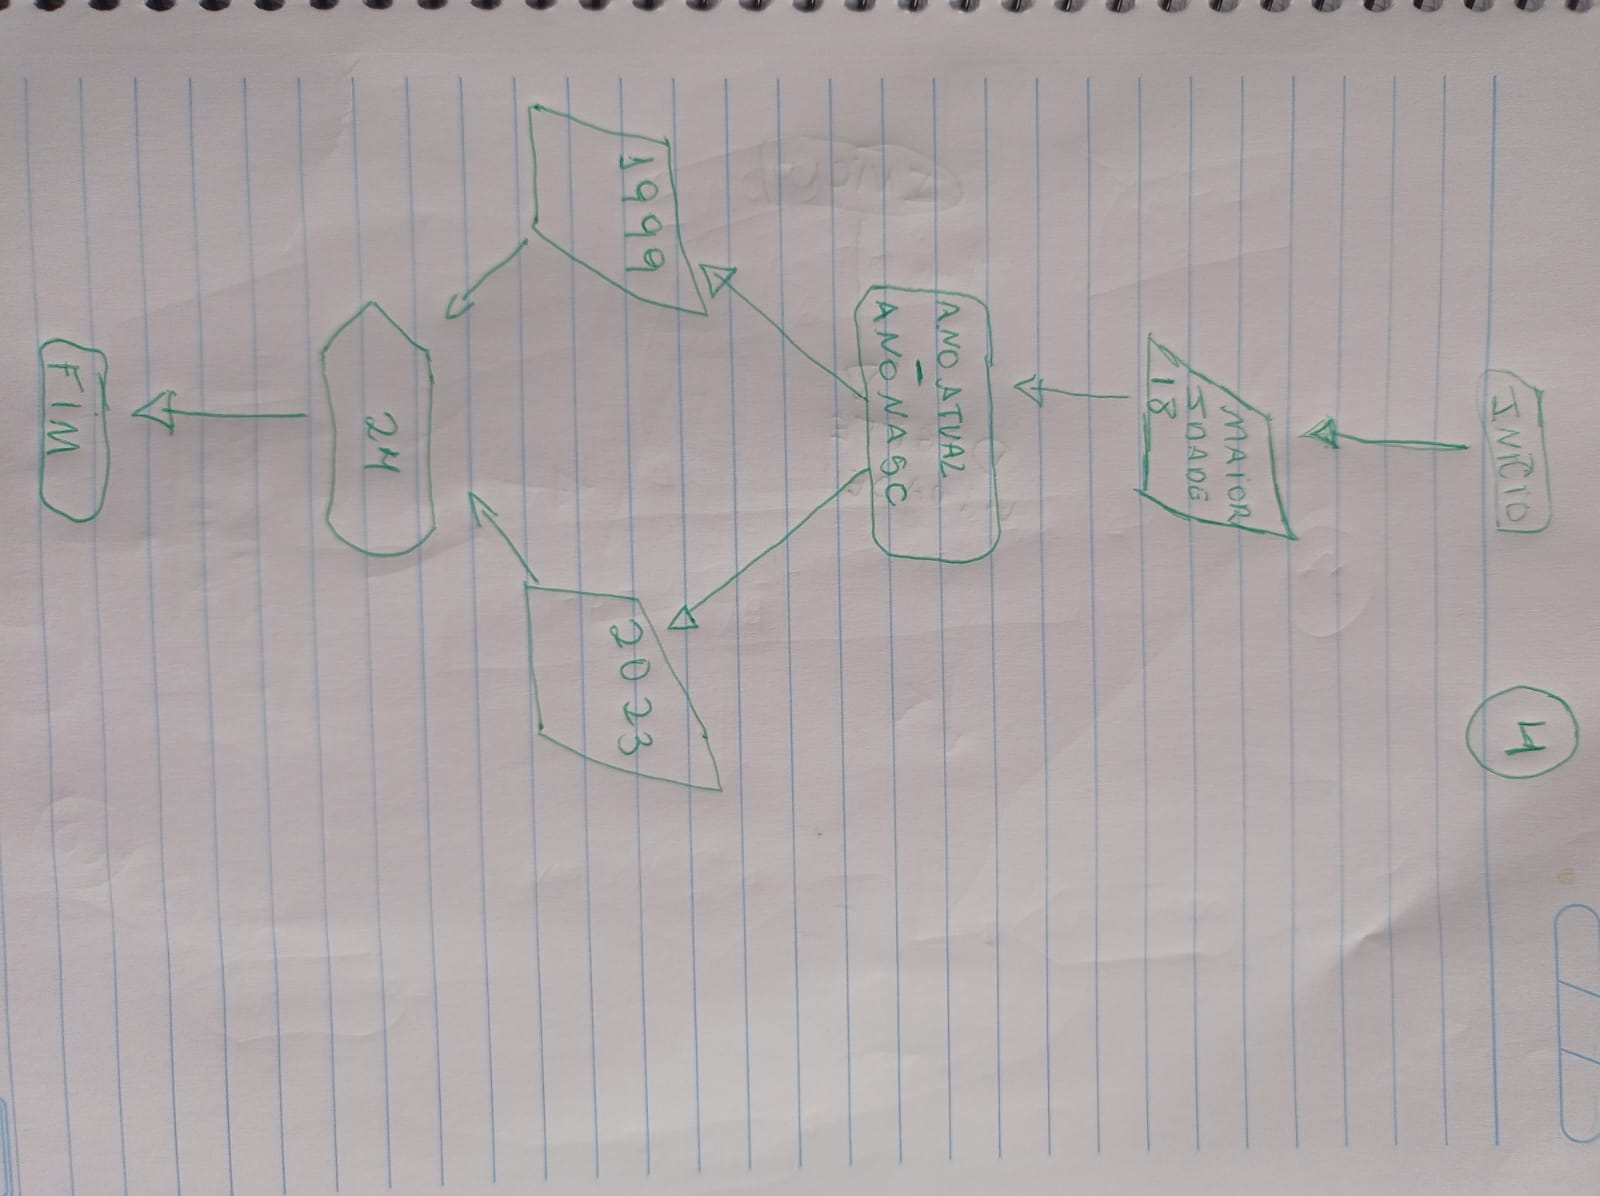 4
INICIO
MAIOR
IDADE
18
ANO ATUAL
-
ANO NASC
1999
2023
24
FIM